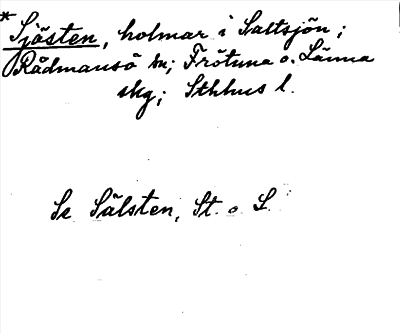 *Sjösten, holmar i Saltsjön;
Rådmansö sn; Frötuna o. Länna
skg; Sthlms l.
Se Sälsten, St. o L.